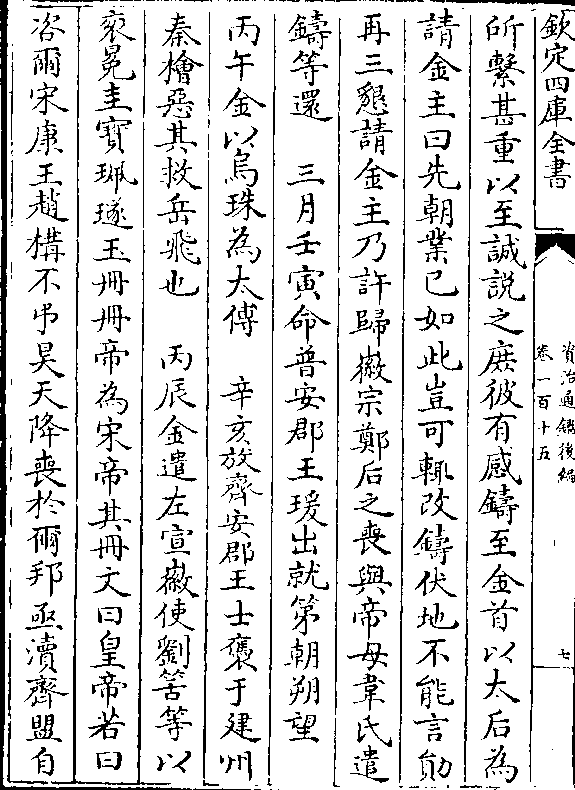 欽定四庫全書
資治通鑑後編
卷一百十五
七
所繫甚重以至誠説之庶彼有感鑄至金首以太后為
請金主曰先朝業已如此豈可輒改鑄伏地不能言勛
再三懇請金主乃許歸徽宗鄭后之喪與帝母韋氏遣
鑄等還　三月壬寅命普安郡王瑗出就第朝朔望
丙午金以烏珠為太傅　辛亥放齊安郡王士㒟于建州
秦檜惡其救岳飛也　丙辰金遣左宣徽使劉筈等以
衮冕圭寶珮璲玉冊冊帝為宋帝其冊文曰皇帝若曰
咨爾宋康王趙構不弔昊天降喪於爾邦亟瀆齊盟自